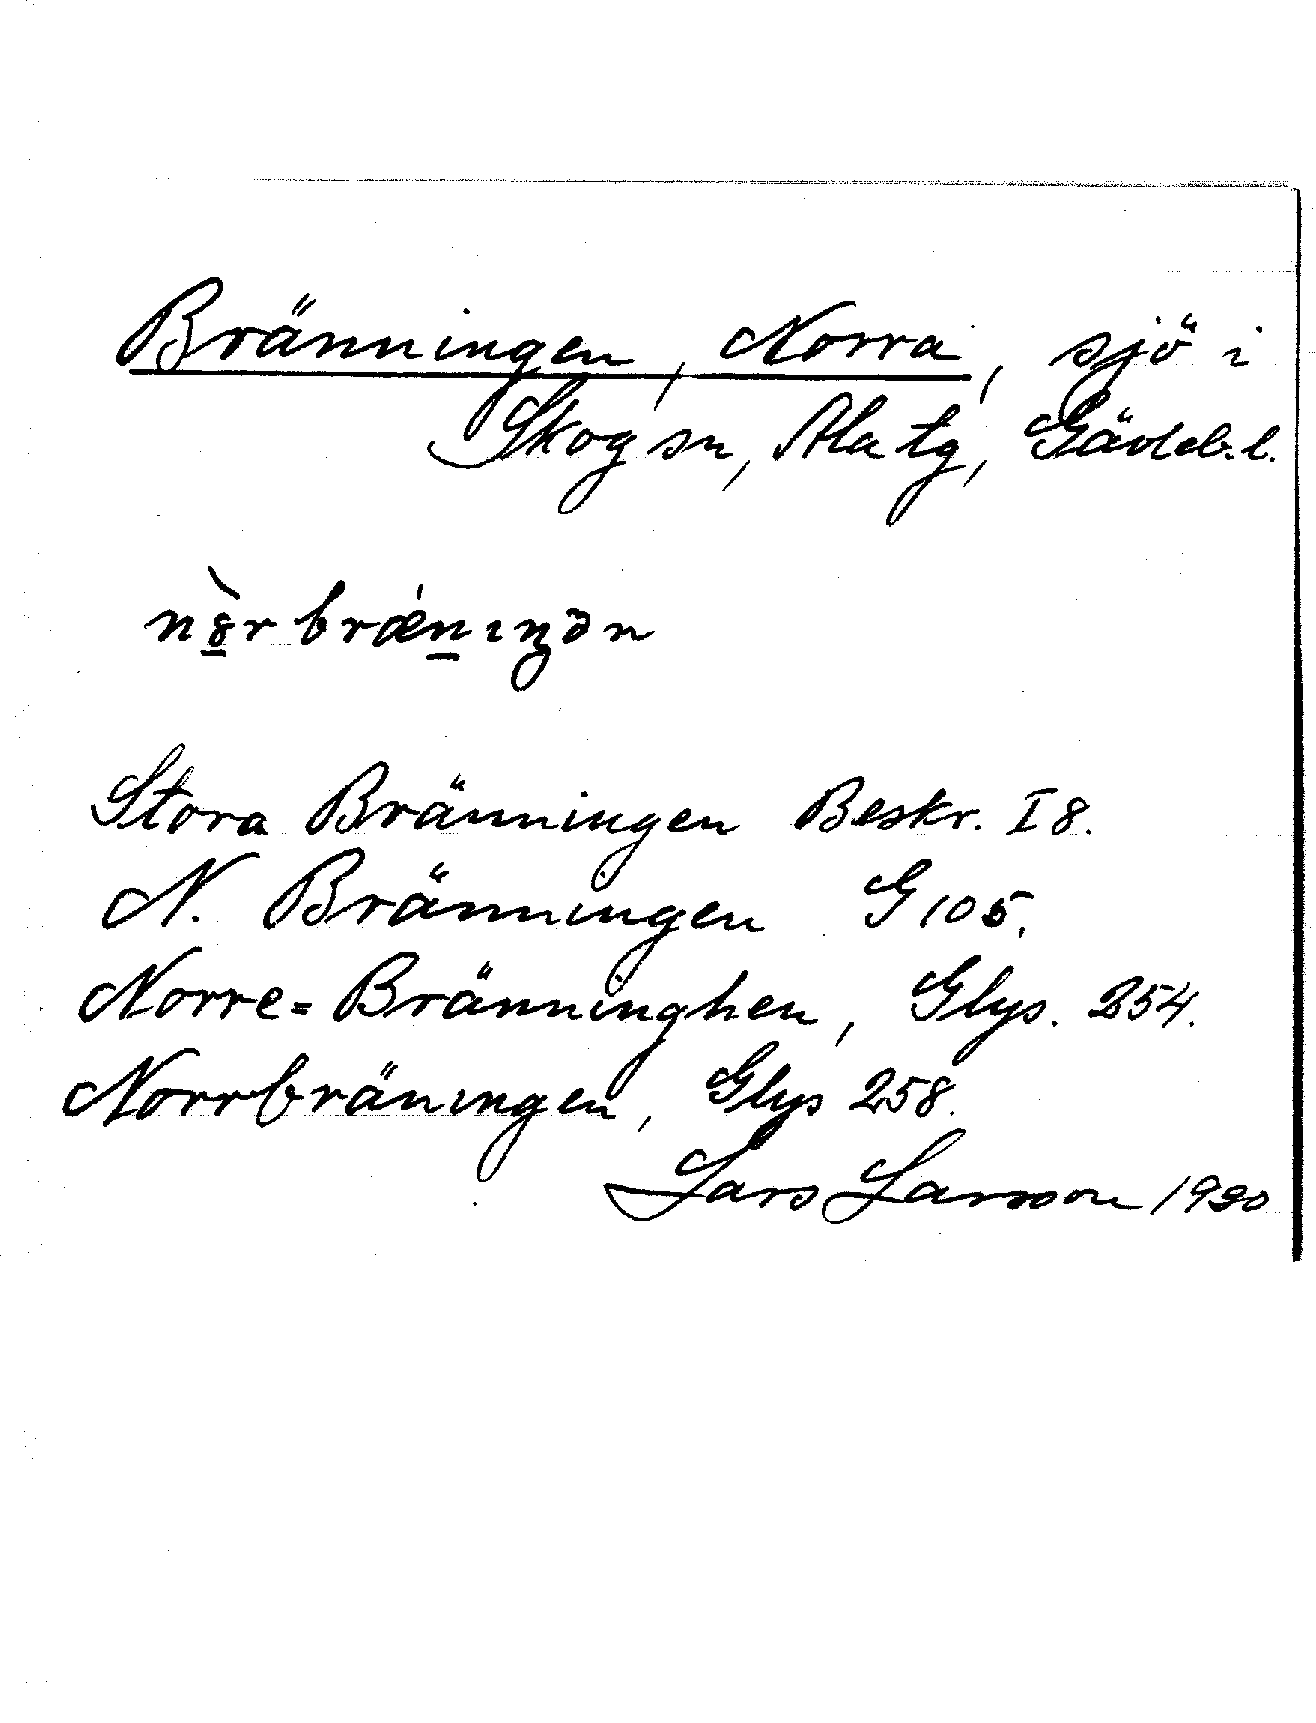 Bränningen, Norra, sjö i
Skog sn, Ala tg, Gävleb. l.
nȣ̀r brǽnıŋən
Stora Bränningen Beskr. I 8.
N. Bränningen G 105.
Norre=Bränninghen, Glys. 254.
Norrbräningen, Glys 258.
Lars Larsson 1930